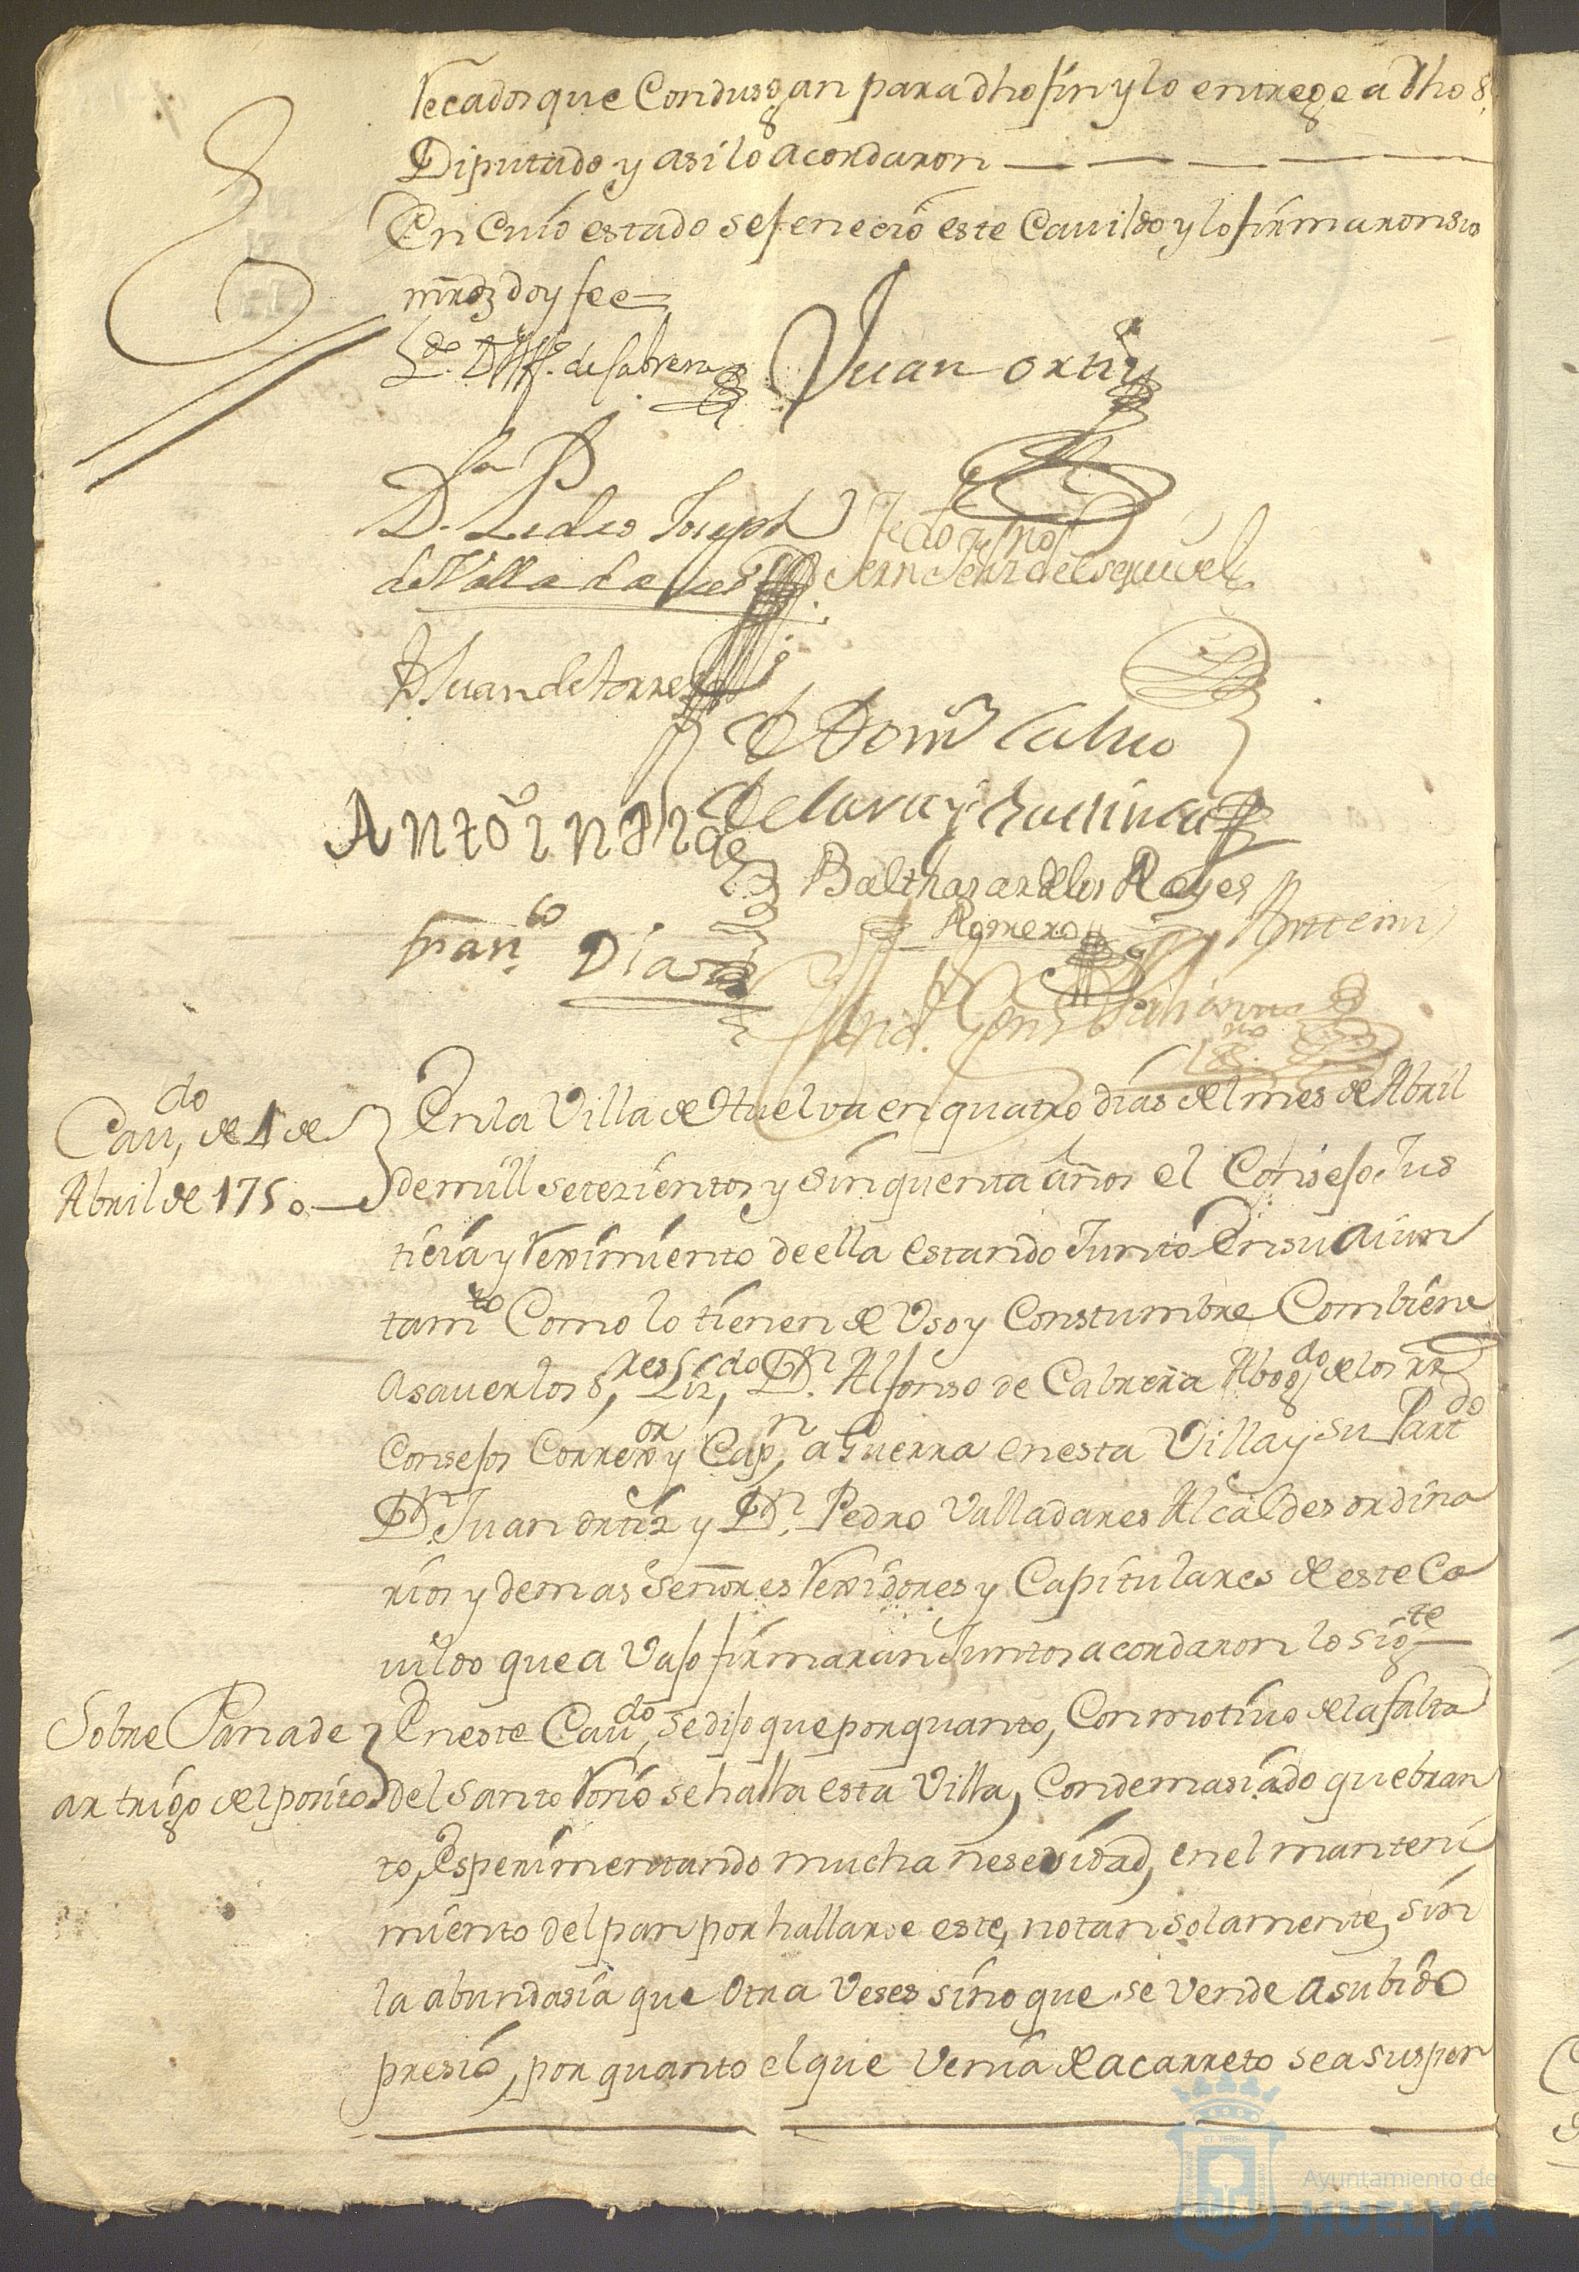 recados que Condusgan para dho fin y lo entrege a Dho S.r
Diputado y asi lo acordaron
En Cuio estado se feneció este Cavildo y lo firmaron sus
mrdz doy fee
L.do D.n Alf.o de Cabrera
Juan ortiz
D.n Pedro Joseph
de Valladares
D Juan de torres
D Dom.o Calvo
de Lara y
Anto
Balthasar de los Reyes
Romero
Ante mi
fran.co Dias
Cav.do de 4 de
Abril de 1750
En la Villa de Huelva en quatro dias del mes de Abril
de mill setezientos y sinquenta años el Consejo Jus
ticia y reximiento de ella estando Junto En su aiun
tam.to Como lo tienen de Uso y Constumbre Combiene
a saver los S.res Liz.do D.n Alfonso de Cabrera Abog.do de los RR
Consejos Correx.or y Cap.n a Guerra en esta Villa y su Part.do
D.n Juan ortiz y D.n Pedro Valladares Alcaldes ordina
rios y demas Señores Rexidores y Capitulares de este Ca
vildo que a Vajo firmaran Juntos acordaron lo sig.te
Sobre Panade
ar trigo del posito
En este Cav.do se dijo que por quanto, Con motivo de la falta
del santo Rosio se halla esta Villa, Con demasiado quebran
to, Esperimentando mucha nesesidad, en el manteni
miento del pan por hallarse este, no tan solamente, sin
la abundasia que Otra Veses sino que se vende a subido
presio, por quanto el que Venia de acarreto sea suspen
Ayuntamiento de
HUELVA